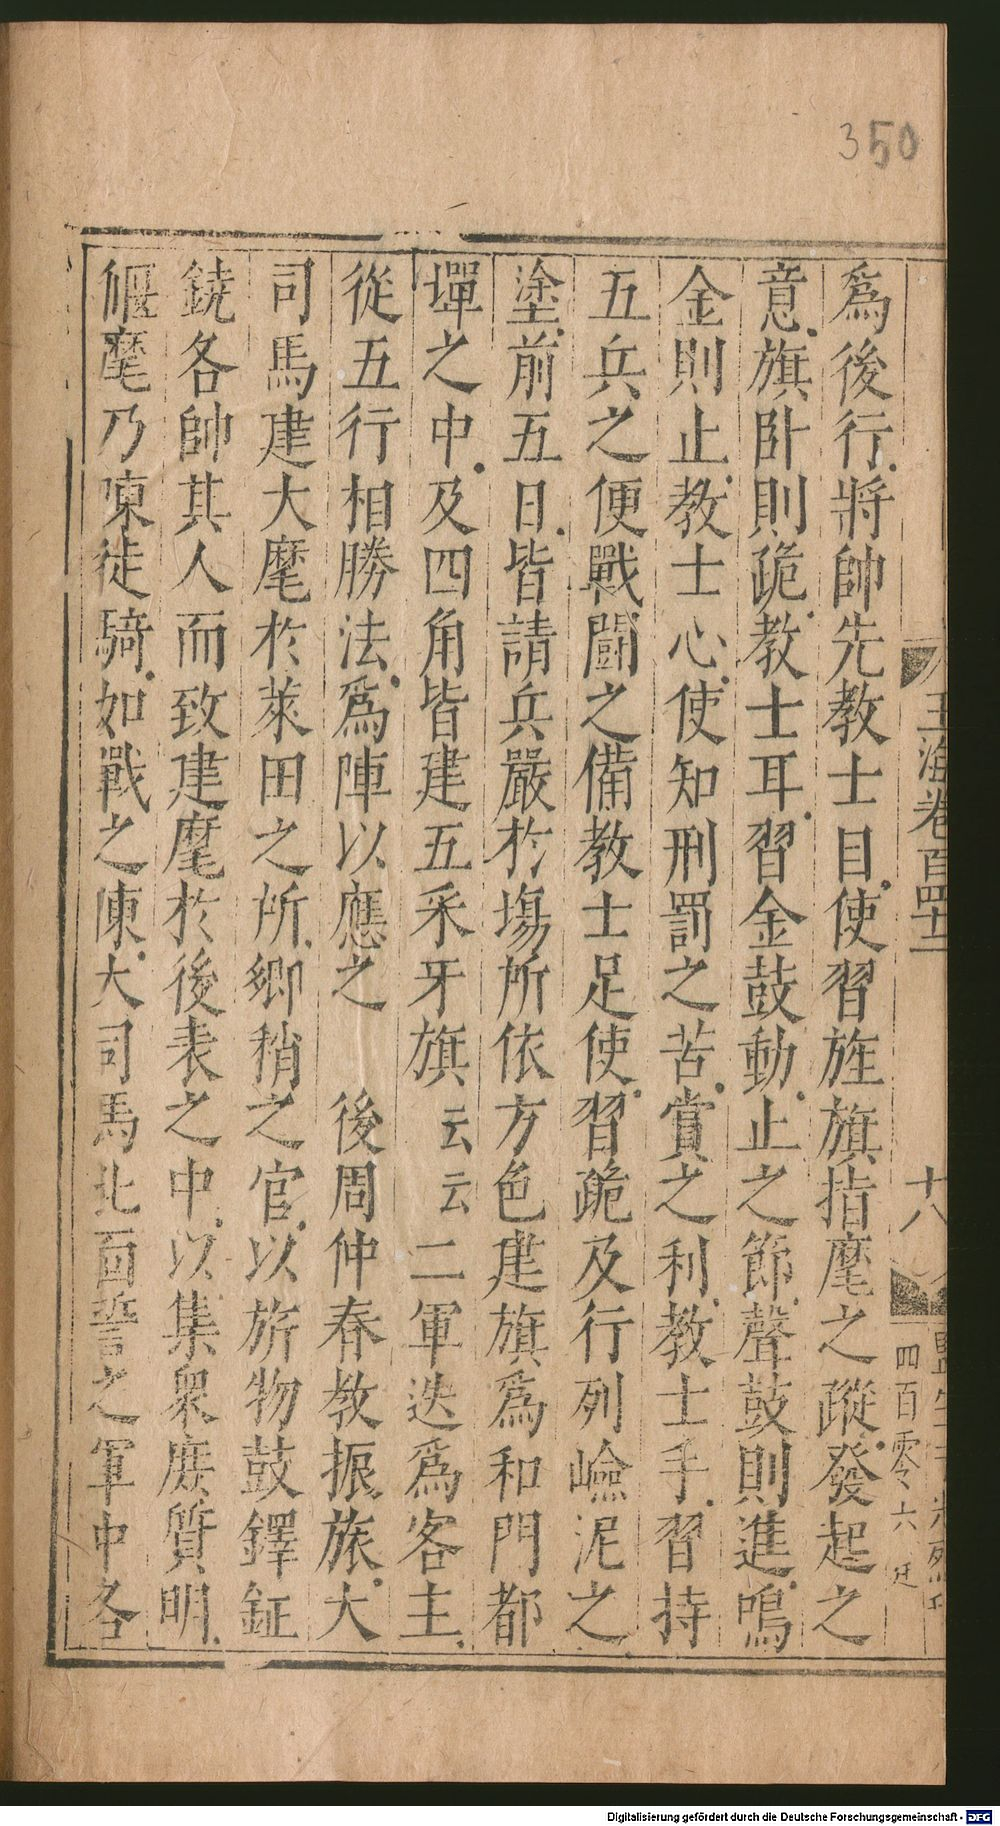 350
玉海卷百四十二
十八
四百零六
爲後行將帥先教士目使習旌旗指麾之蹤發起之
意旗卧則跪教士耳習金鼓動止之節聲鼓則進鳴
金則止教士心使知刑罰之苦賞之利教士手習持
五兵之便戰鬬之備教士足使習跪及行列嶮泥之
塗前五日皆請兵嚴於場所依方色建旗爲和門都
墠之中及四角皆建五采牙旗云云二軍迭爲客主
從五行相勝法爲陣以應之　後周仲春教振旅大
司馬建大麾於萊田之所鄉稍之官以旂物鼓鐸鉦
鐃各帥其人而致建麾於後表之中以集衆庶質明
偃麾乃陳徒騎如戰之陳大司馬北面誓之軍中各
Digitalisierung gefördert durch die Deutsche Forschungsgemeinschaft - DFG